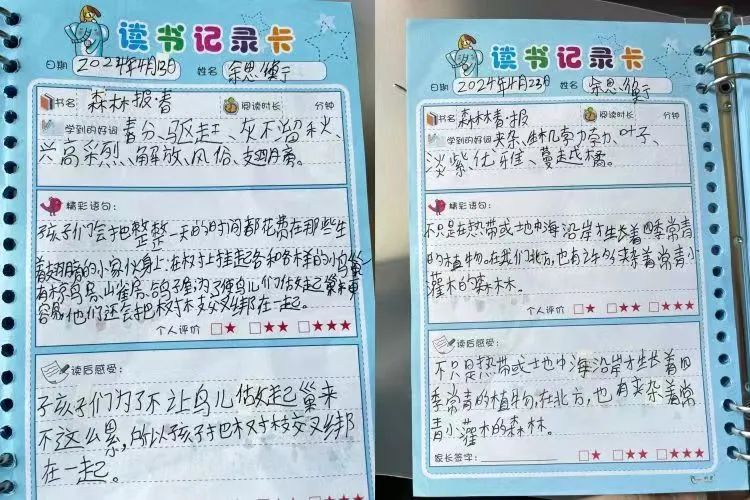 读书记录卡
日期 2024年4月13日 姓名 余思缜宁
书名 森林报春 阅读时长 分钟
学到的好词 春分、驱赶、灰不溜秋、
兴高彩烈、解放、风俗、翅膀。
精彩语句:
孩子们会把整整一天的时间都花费在那些生
着翅膀的小家伙身上:在树上挂起各种各样的小鸟巢
有椋鸟房、山雀房、鸽子屋;为了便鸟儿们做起巢来更
容易,他们还会把树枝交叉绑在一起。
个人评价 □★ □★★ □★★★
读后感受:
孩子们为了不让鸟儿做起巢来
不这么累,所以孩子把树枝交叉绑
在一起。
读书记录卡
日期 2024年4月23日 姓名 余思缜宁
书名 森林春报 阅读时长 分钟
学到的好词 夹杂、生机勃勃、叶子、
淡紫、优雅、蔓越橘。
精彩语句:
不只是在热带或地中海沿岸才生长着四季常青
的植物。在我们北方,也有许多夹着常青小
灌木的森林。
个人评价 □★ □★★ □★★★
读后感受:
不只是热带或地中海沿岸才生长着四
季常青的植物,在北方,也有夹杂着常
青小灌木的森林。
家长签字: □★ □★★ □★★★